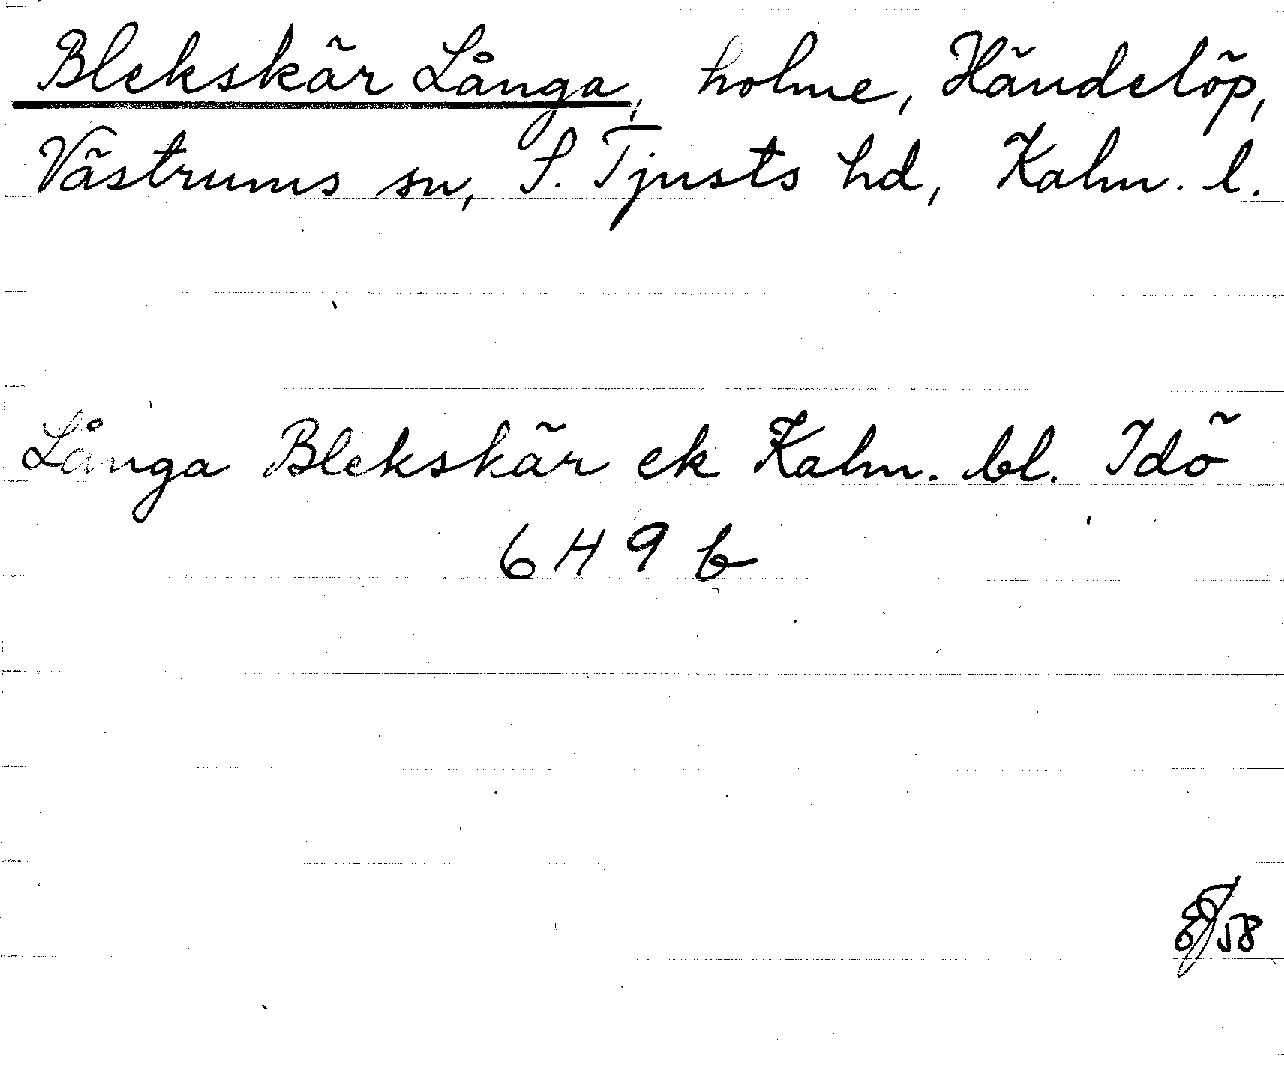 Blekskär Långa, holme, Händelöp,
Västrums sn, S. Tjusts hd, Kalm. l.
Långa Blekskär ek Kalm. bl. Idö
6 H 9 b
58